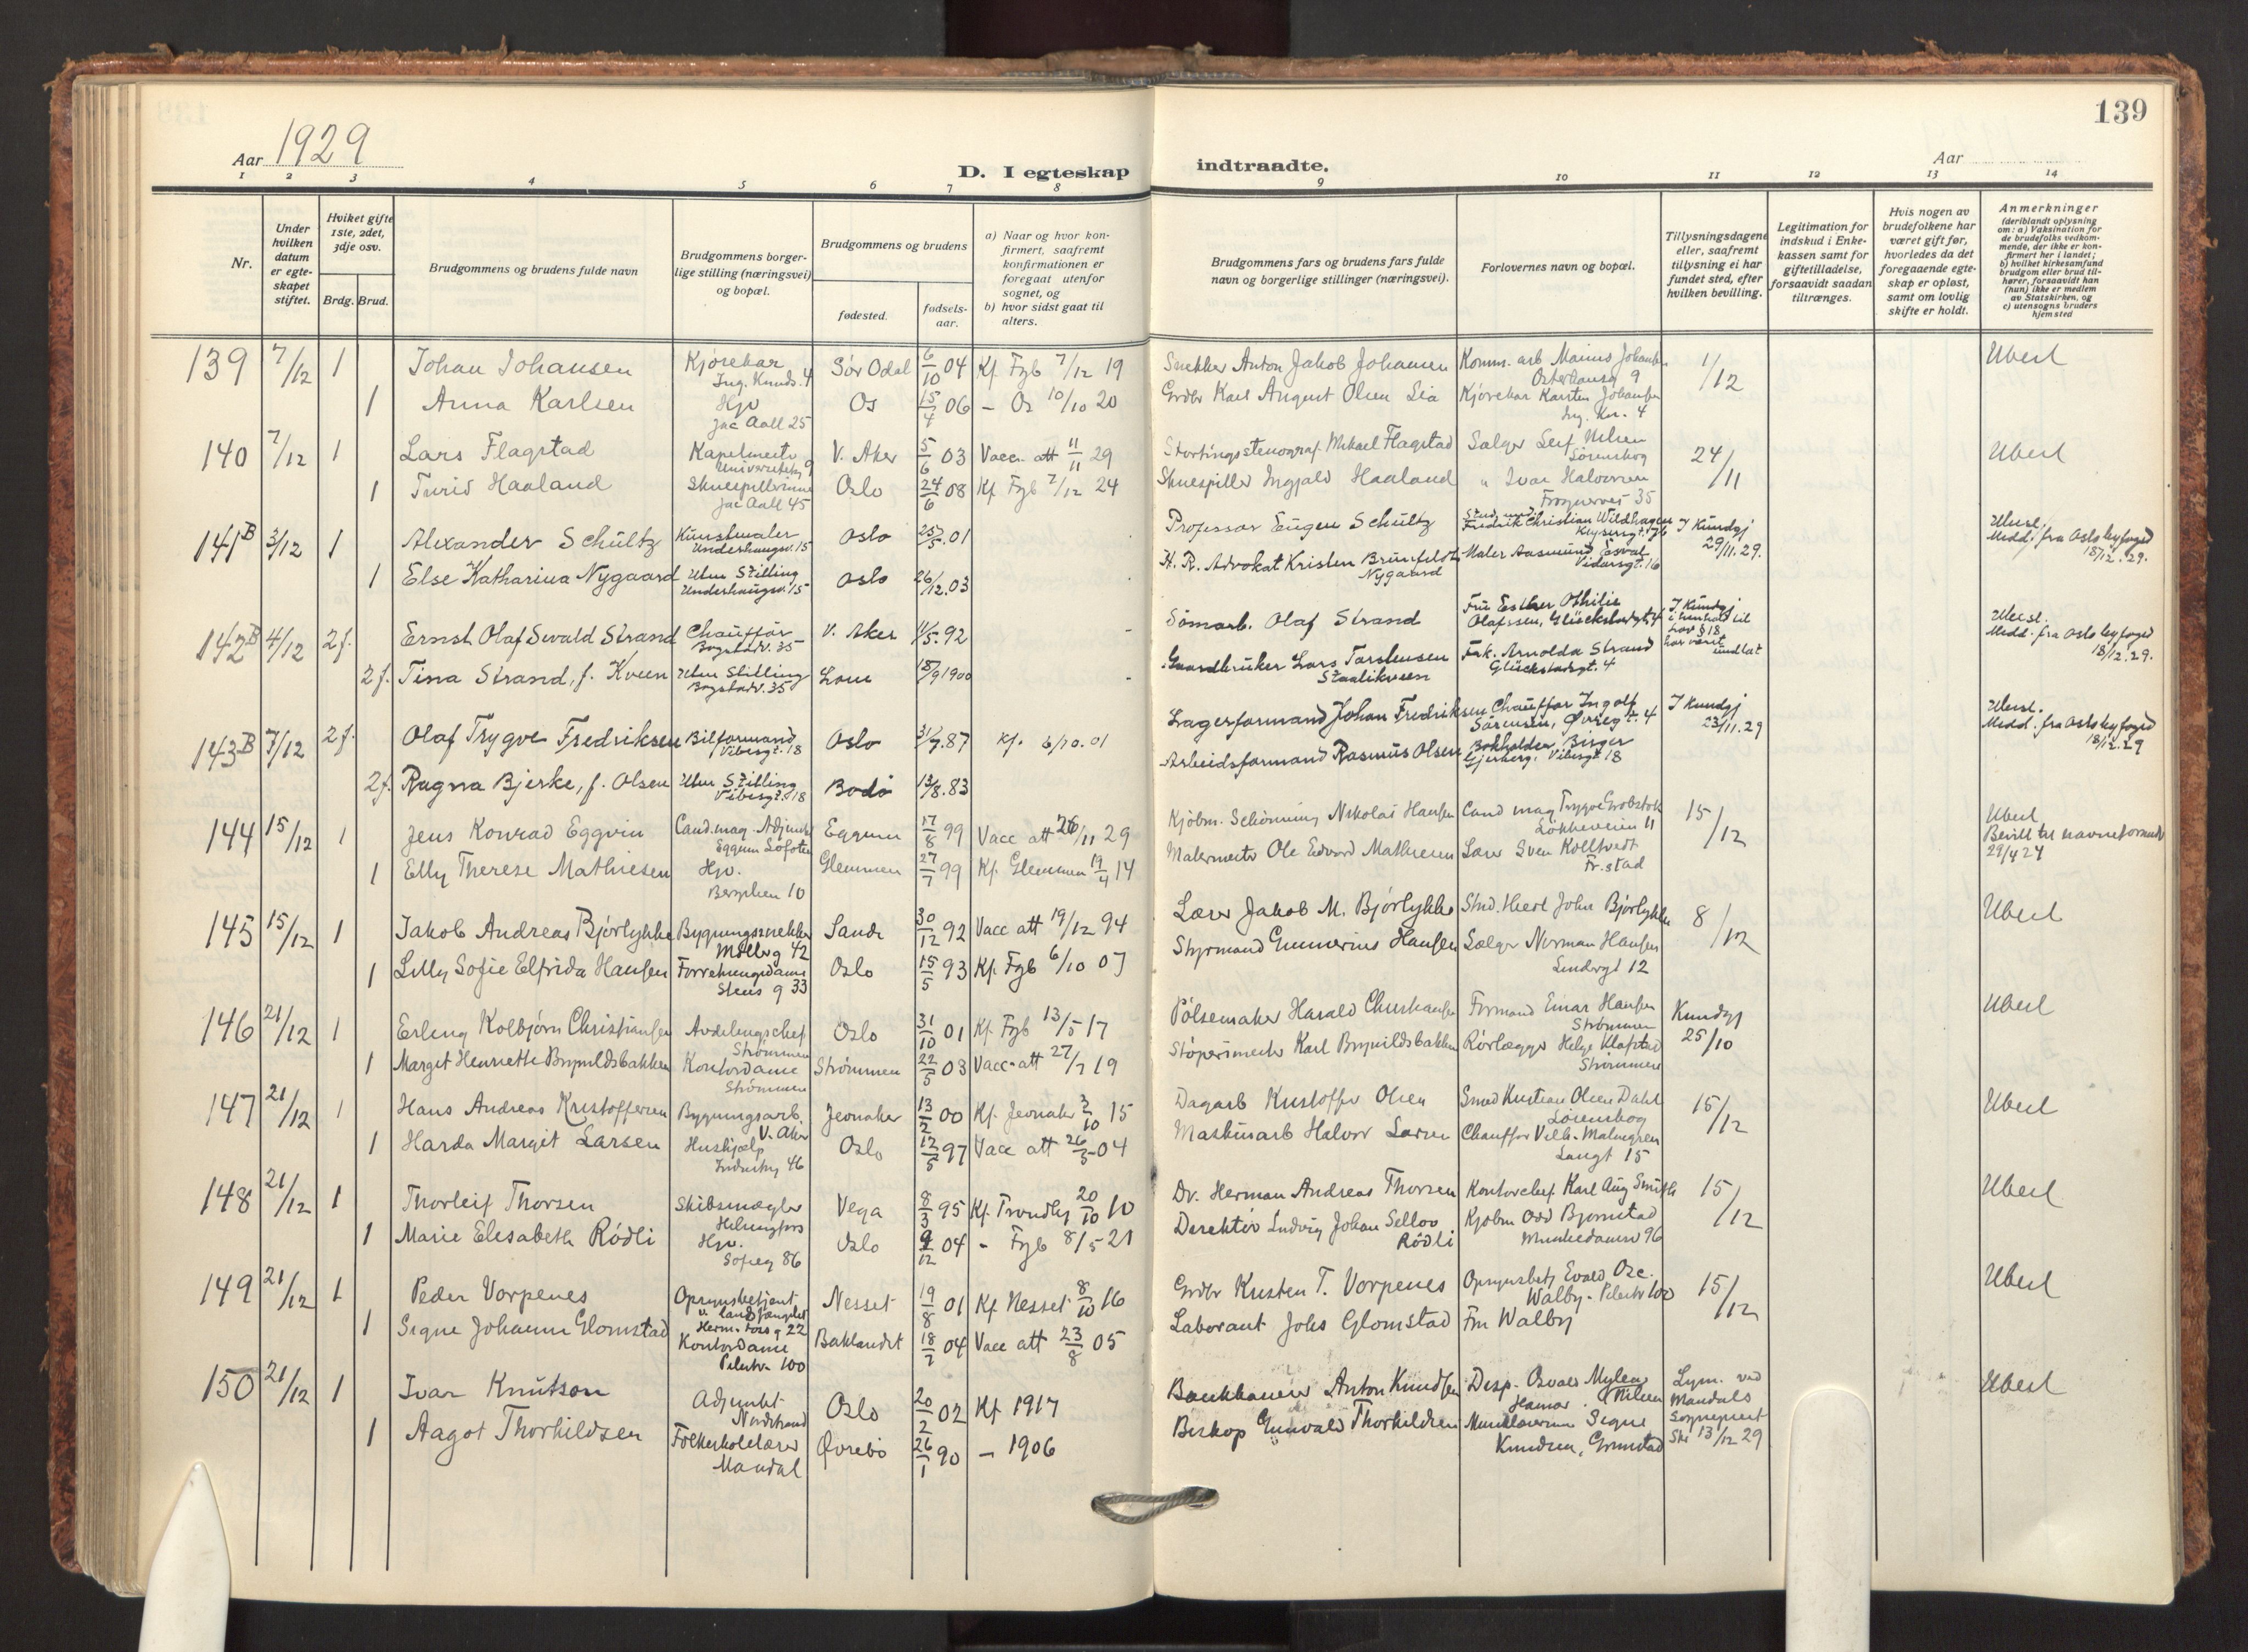 139
Aar 1929
D. I egteskap indtraadte.
Aar
1 2 3 4 5 6 7 8 9 10 11 12 13 14
Nr.
Under hvilken datum er egte-skapet stiftet.
Hviket gifte 1ste, 2det, 3dje osv.
Brdg. Brud.
Brudgommens og brudens fulde navn
Brudgommens borger-lige stilling (næringsvei) og bopæl.
Brudgommens og brudens
fødested.
fødsels-aar.
a) Naar og hvor kon-firmert, saafremt konfirmationen er foregaat utenfor sognet, og
b) hvor sidst gaat til alters.
Brudgommens fars og brudens fars fulde navn og borgerlige stillinger (næringsvei).
Forlovernes navn og bopæl.
Tillysningsdagene eller, saafremt tillysning ei har fundet sted, efter hvilken bevilling.
Legitimation for indskud i Enke-kassen samt for giftetilladelse, forsaavidt saadan tiltrænges.
Hvis nogen av brudefolkene har været gift før, hvorledes da det foregaaende egte-skap er opløst, samt om lovlig skifte er holdt.
Anmerkninger
(deriblandt oplysning om: a) Vaksination for de brudefolks vedkom-mende, der ikke er kon-firmert her i landet; b) hvilket kirkesamfund brudgom eller brud til-hører, forsaavidt han (hun) ikke er medlem av Statskirken, og c) utensogns bruders hjemsted
139 7/12 1 Johan Johansen Kjørekar Sør Odal 6/10 04 Kf. Fgb 7/12 19 Snekker Anton Jakob Johansen Komm. arb Marius Johansen 1/12 Uberl
Ing. Knuds. 4 Osterhausg 9
1 Anna Karlsen Hjv Os 15/4 06 - Os 10/10 20 Grdbr Karl August Olsen Lia Kjørekar Karsten Johansen
Jac Aall 25 Ing. Kn. 4
140 7/12 1 Lars Flagstad Kapelmester V. Aker 5/6 03 Vacc. att 11/11 29 Stortingsstenograf Mikael Flagstad Selger Leif Nilsen 24/11 Uberl
Universitetsg 9 Lørenskog
1 Turid Haaland Skuespillerinne Oslo 24/6 08 Kf Fgb 7/12 24 Skuespiller Ingjald Haaland " Ivar Halvorsen
Jac Aall 45 Frognervei 35
141B 3/12 1 Alexander Schultz Kunstmaler Oslo 25/5.01 Professor Eugen Schultz Stud. med. Fredrik Christian Wildhagen I Kundgj 29/11.29.
Underhaugsv. 15
Medd. fra Oslo byfoged 18/12.29.
1 Else Katharina Nygaard Uten Stilling Oslo 26/12.03 H. R. Advokat Kristen Brunfeldt Nygaard Maler Aasmund Esval
Underhaugsv. 15 Vidarsgt. 16
142B 4/12 2 f. Ernst Olaf Swald Strand Chauffør V. Aker 11/5.92 Sømarb. Olaf Strand Fru Esther Othilie Olafssen, Glückstadsgt. 4 I Kundgj i henhold til lov § 18 har været undlat
Bogstadv. 35
Medd. fra Oslo byfoged 18/12.29.
2 f. Tina Strand, f. Kveen Uten Stilling Lom 18/9 1900 Gaardbruker Lars Torstensen Staalikveen Frk. Arnolda Strand
Bogstadv. 35 Glückstadsgt. 4
143B 7/12 2 f. Olaf Trygve Fredriksen Bilformand Oslo 31/7.87 Kf. 6/10.01 Lagerformand Johan Fredriksen Chauffør Ingolf Sørensen, Øvregt. 4 I Kundgj 23/11.29
Vibesgt. 18
Medd. fra Oslo byfoged 18/12.29
2 f. Ragna Bjerke, f. Olsen Uten Stilling Bodø 13/8.83 Arbeidsformand Rasmus Olsen Bokholder Birger Gjerberg, Vibesgt 18
Vibesgt. 18
144 15/12 1 Jens Konrad Eggvin Cand. mag. Adjunkt Eggum 17/8 99 Vacc att 26/11 29 Kjøbm. Schønning Nikolai Hansen Cand mag Trygve Grobstok 15/12 Uberl
Eggum Lofoten Løkkeveien 11 29/4 24
1 Elly Therese Mathiesen Hjv. Glemmen 27/7 99 Kf. Glemmen 19/4 14 Malermester Ole Edvard Mathiesen Lærer Sven Kolltvedt
Bergslien 10 Fr.stad
145 15/12 1 Jakob Andreas Bjørlykke Bygningssnekker Sande 30/12 92 Vacc att 19/12 94 Lærer Jakob M. Bjørlykke John Bjørlykke 8/12 Uberl
Møllerg 42
1 Lilly Sofie Elfrida Hansen Forretningsdame Oslo 15/5 93 Kf. Fgb 6/10 07 Styrmand Gunnerius Hansen Selger Norman Hansen
Stens g 33
146 21/12 1 Erling Kolbjørn Christiansen Avdelingschef Oslo 31/10 01 Kf Fgb 13/5 17 Pølsemaker Harald Christiansen Formand Einar Hansen Kundgj 25/10 Uberl
Strømmen Strømmen
1 Margit Henriette Brynildsbakken Kontordame Strømmen 22/5 03 Vacc-att 27/7 19 Støperimester Karl Brynildsbakken Rørlægger Helge Klafstad
Strømmen Strømmen
147 21/12 1 Hans Andreas Kristoffersen Bygningsarb. Jevnaker 13/2 00 Kf. Jevnaker 3/10 15 Dagarb Kristoffer Olsen Smed Kristian Olsen Dahl 15/12 Uberl
V. Aker Lørenskog
1 Harda Margit Larsen Hushjælp Oslo 12/5 97 Vacc att 26/5 04 Maskinarb Halvor Larsen Chauffør Vilh. Malmgren
Industrig 46 Langt 15
148 21/12 1 Thorleif Thorsen Skibsmægler Vega 8/3 95 Kf. Trondhj 20/10 10 Dr. Herman Andreas Thorsen Kontorchef Karl Aug Smith 15/12 Uberl
Helsingfors
1 Marie Elisabeth Rödli Hjv. Oslo 9/12 04 - Fgb 8/5 21 Direktør Ludvig Johan Sellov Rödli Kjøbm Odd Bjørnstad
Sofieg 86 Munkedamsv 96
149 21/12 1 Peder Vorpenes Opsynsbetjent v. landsfængslet Nesset 19/8 01 Kf Nesset 8/10 16 Grdbr Kristen T. Vorpenes Opsynsbetj Evald Osc. Walby - Pilestr 100 15/12 Uberl
Herm. Foss g 22
1 Signe Johanne Glomstad Kontordame Baklandet 18/7 04 Vacc att 23/8 05 Laborant Johs Glomstad Fru Walby
Pilestr. 100
150 21/12 1 Ivar Knutson Adjunkt Oslo 20/2 02 Kf 1917 Bankkasserer Anton Knudsen Disp. Osvald Mylen Nilsen Lysn. ved Mandals Sogneprest Uberl
Nordstrand Hamar
1 Aagot Thorkildsen Folkeskolelærer Øvrebø 26/1 90 - 1906 Biskop Gunvald Thorkildsen Musiklærerinne Signe Knudsen, Grimstad 13/12 29
Mandal